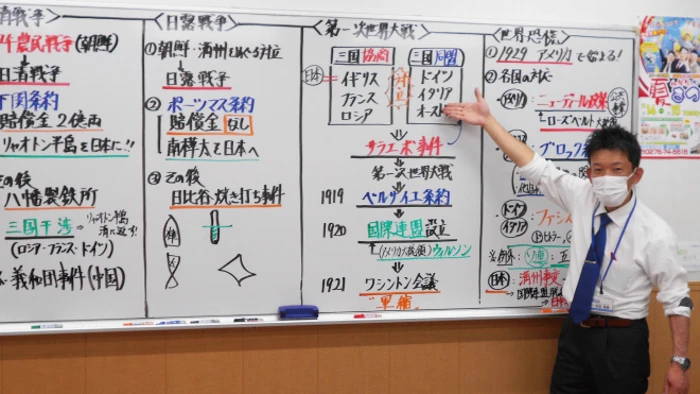 清戦争
農民戦争（朝鮮）
日清戦争
下関条約
賠償金 2億両
リャオトン半島を日本に!!
その後
八幡製鉄所
三国干渉→リャオトン半島
清に返す!
（ロシア・フランス・ドイツ）
義和団事件（中国）
日露戦争
①朝鮮・満州をめぐる対立
→日露戦争
②ポーツマス条約
賠償金なし
南樺太を日本へ
③その後
日比谷焼き打ち事件
第一次世界大戦
三国協商
三国同盟
日本
イギリス
フランス
ロシア
対立
ドイツ
イタリア
オースト
サラエボ事件
第一次世界大戦
1919 ベルサイユ条約
1920 国際連盟設立
（アメリカ大統領）ウィルソン
1921 ワシントン会議
"軍縮"
世界恐慌
①1929 アメリカで始まる!
②各国の対応
アメリカ
ニューディール政策
公共事業
ローズベルト大統領
ブロック
ドイツ
イタリア
ファシ
ヒトラー
※例外:ソ連:五
日本:満州事変
→国際連盟
夏
0276-74-8818